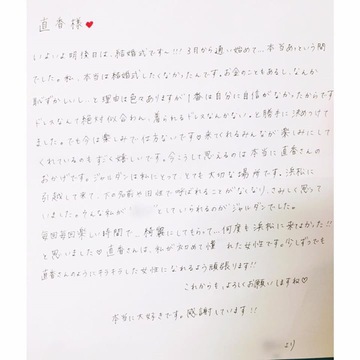 直香様♥
いよいよ明後日は、結婚式です〜!!! 3月から通い始めて...本当あっという間
でした。私、本当は結婚式したくなかったんです。お金のこともあるし、なんか
恥ずかしいし...と理由は色々ありますが1番は自分に自信がなかったからです
ドレスなんて絶対似合わん、着られるドレスなんかない。と勝手に決めつけて
ました。でも今は楽しみで仕方ないです 来てくれるみんなが楽しみにして
くれているのもすごく嬉しいです。今こうして思えるのは本当に直香さんの
おかげです。ジャルダンは私にとって、とても大切な場所です。浜松に
引越して来て、下の名前や旧姓で呼ばれることがなくなり、さみしく思って
いました。そんな私が としていられるのがジャルダンでした。
毎回毎回楽しい時間で、綺麗にしてもらって...何度も浜松に来てよかった!!
と思いました 直香さんは、私が初めて憧れた女性です。少しずつでも
直香さんのようにキラキラした女性になれるよう頑張ります!!
これからも、よろしくお願いしますね♡
本当に大好きです。感謝しています!!
より